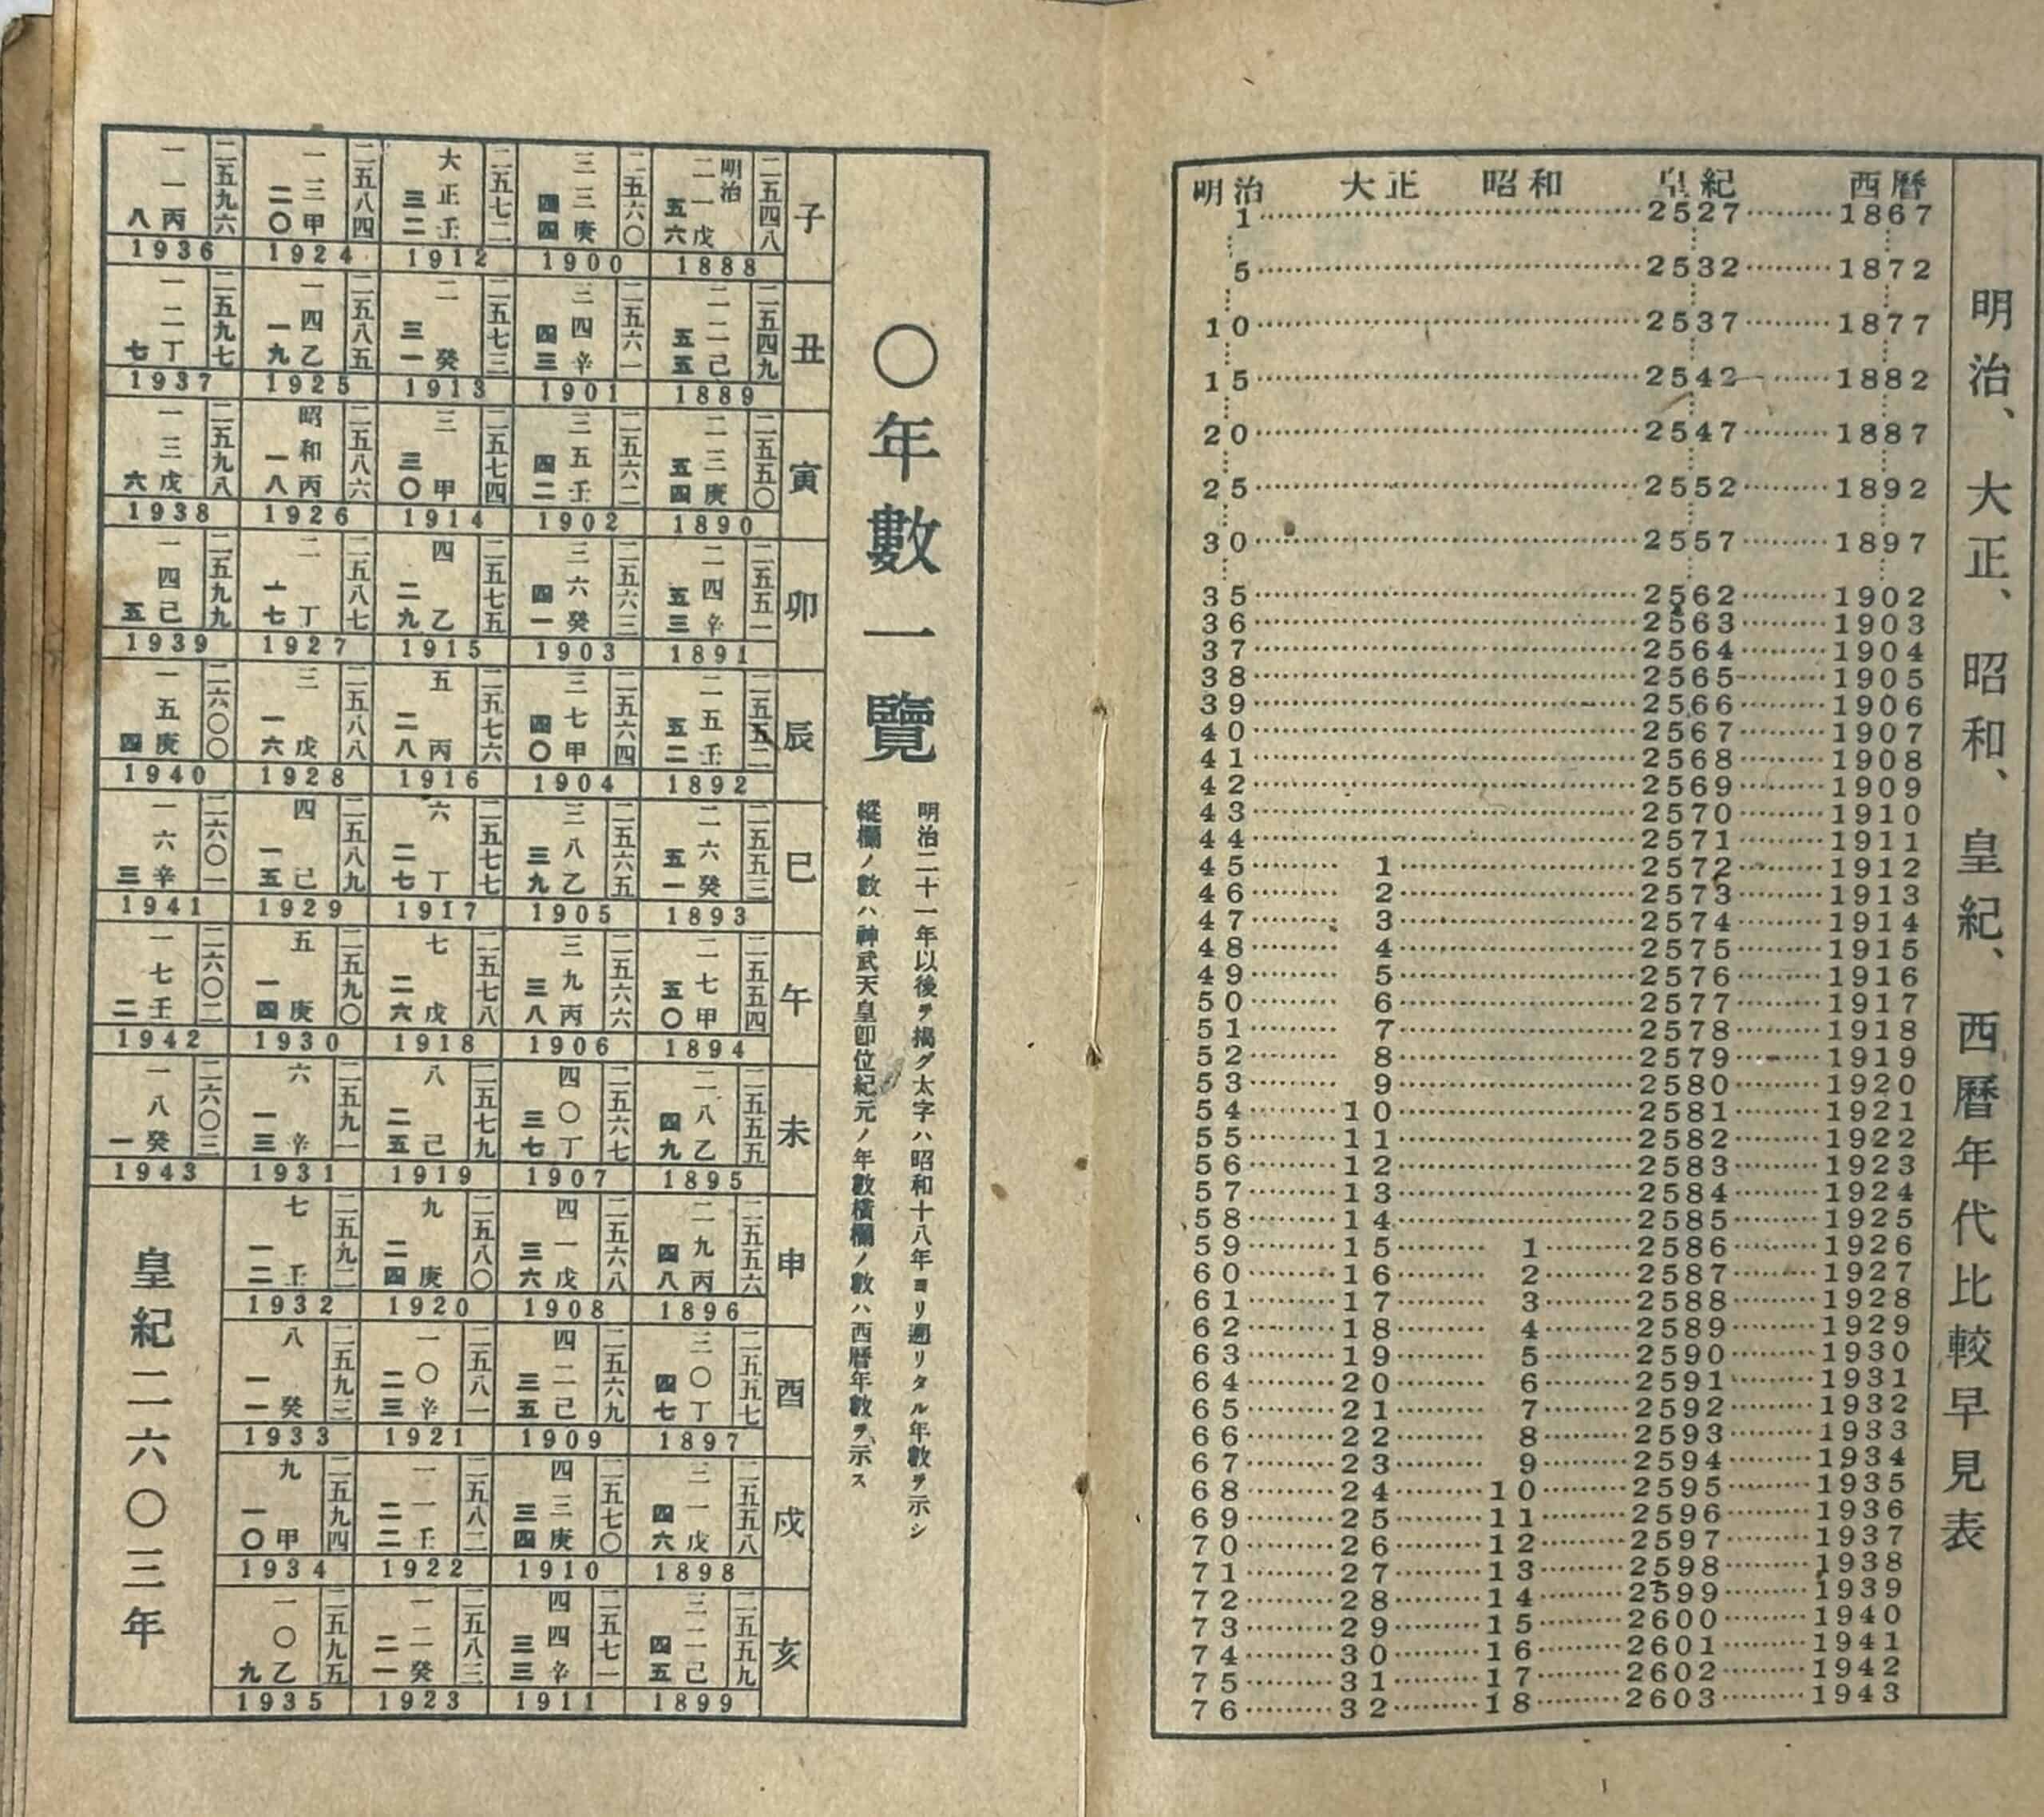 明治、大正、昭和、皇紀、西曆年代比較早見表
明治 大正 昭和 皇紀 西曆
1 2527 1867
5 2532 1872
10 2537 1877
15 2542 1882
20 2547 1887
25 2552 1892
30 2557 1897
35 2562 1902
36 2563 1903
37 2564 1904
38 2565 1905
39 2566 1906
40 2567 1907
41 2568 1908
42 2569 1909
43 2570 1910
44 2571 1911
45 1 2572 1912
46 2 2573 1913
47 3 2574 1914
48 4 2575 1915
49 5 2576 1916
50 6 2577 1917
51 7 2578 1918
52 8 2579 1919
53 9 2580 1920
54 10 2581 1921
55 11 2582 1922
56 12 2583 1923
57 13 2584 1924
58 14 2585 1925
59 15 1 2586 1926
60 16 2 2587 1927
61 17 3 2588 1928
62 18 4 2589 1929
63 19 5 2590 1930
64 20 6 2591 1931
65 21 7 2592 1932
66 22 8 2593 1933
67 23 9 2594 1934
68 24 10 2595 1935
69 25 11 2596 1936
70 26 12 2597 1937
71 27 13 2598 1938
72 28 14 2599 1939
73 29 15 2600 1940
74 30 16 2601 1941
75 31 17 2602 1942
76 32 18 2603 1943
〇年數一覽
明治二十一年以後ヲ揭グ太字ハ昭和十八年ヨリ遡リタル年數ヲ示シ
縱欄ノ數ハ神武天皇卽位紀元ノ年數橫欄ノ數ハ西曆年數ヲ示ス
子
二五四八 明治二一戊 五六 1888
二五六〇 三三庚 四四 1900
二五七二 大正壬 三二 1912
二五八四 一三甲 二〇 1924
二五九六 一一丙 八 1936
丑
二五四九 二二己 五五 1889
二五六一 三四辛 四三 1901
二五七三 二癸 三一 1913
二五八五 一四乙 一九 1925
二五九七 一二丁 七 1937
寅
二五五〇 二三庚 五四 1890
二五六二 三五壬 四二 1902
二五七四 三甲 三〇 1914
二五八六 昭和丙 一八 1926
二五九八 一三戊 六 1938
卯
二五五一 二四辛 五三 1891
二五六三 三六癸 四一 1903
二五七五 四乙 二九 1915
二五八七 二丁 一七 1927
二五九九 一四己 五 1939
辰
二五五二 二五壬 五二 1892
二五六四 三七甲 四〇 1904
二五七六 五丙 二八 1916
二五八八 三戊 一六 1928
二六〇〇 一五庚 四 1940
巳
二五五三 二六癸 五一 1893
二五六五 三八乙 三九 1905
二五七七 六丁 二七 1917
二五八九 四己 一五 1929
二六〇一 一六辛 三 1941
午
二五五四 二七甲 五〇 1894
二五六六 三九丙 三八 1906
二五七八 七戊 二六 1918
二五九〇 五庚 一四 1930
二六〇二 一七壬 二 1942
未
二五五五 二八乙 四九 1895
二五六七 四〇丁 三七 1907
二五七九 八己 二五 1919
二五九一 六辛 一三 1931
二六〇三 一八癸 一 1943
申
二五五六 二九丙 四八 1896
二五六八 四一戊 三六 1908
二五八〇 九庚 二四 1920
二五九二 七壬 一二 1932
酉
二五五七 三〇丁 四七 1897
二五六九 四二己 三五 1909
二五八一 一〇辛 二三 1921
二五九三 八癸 一一 1933
戌
二五五八 三一戊 四六 1898
二五七〇 四三庚 三四 1910
二五八二 一一壬 二二 1922
二五九四 九甲 一〇 1934
亥
二五五九 三二己 四五 1899
二五七一 四四辛 三三 1911
二五八三 一二癸 二一 1923
二五九五 一〇乙 九 1935
皇紀二六〇三年